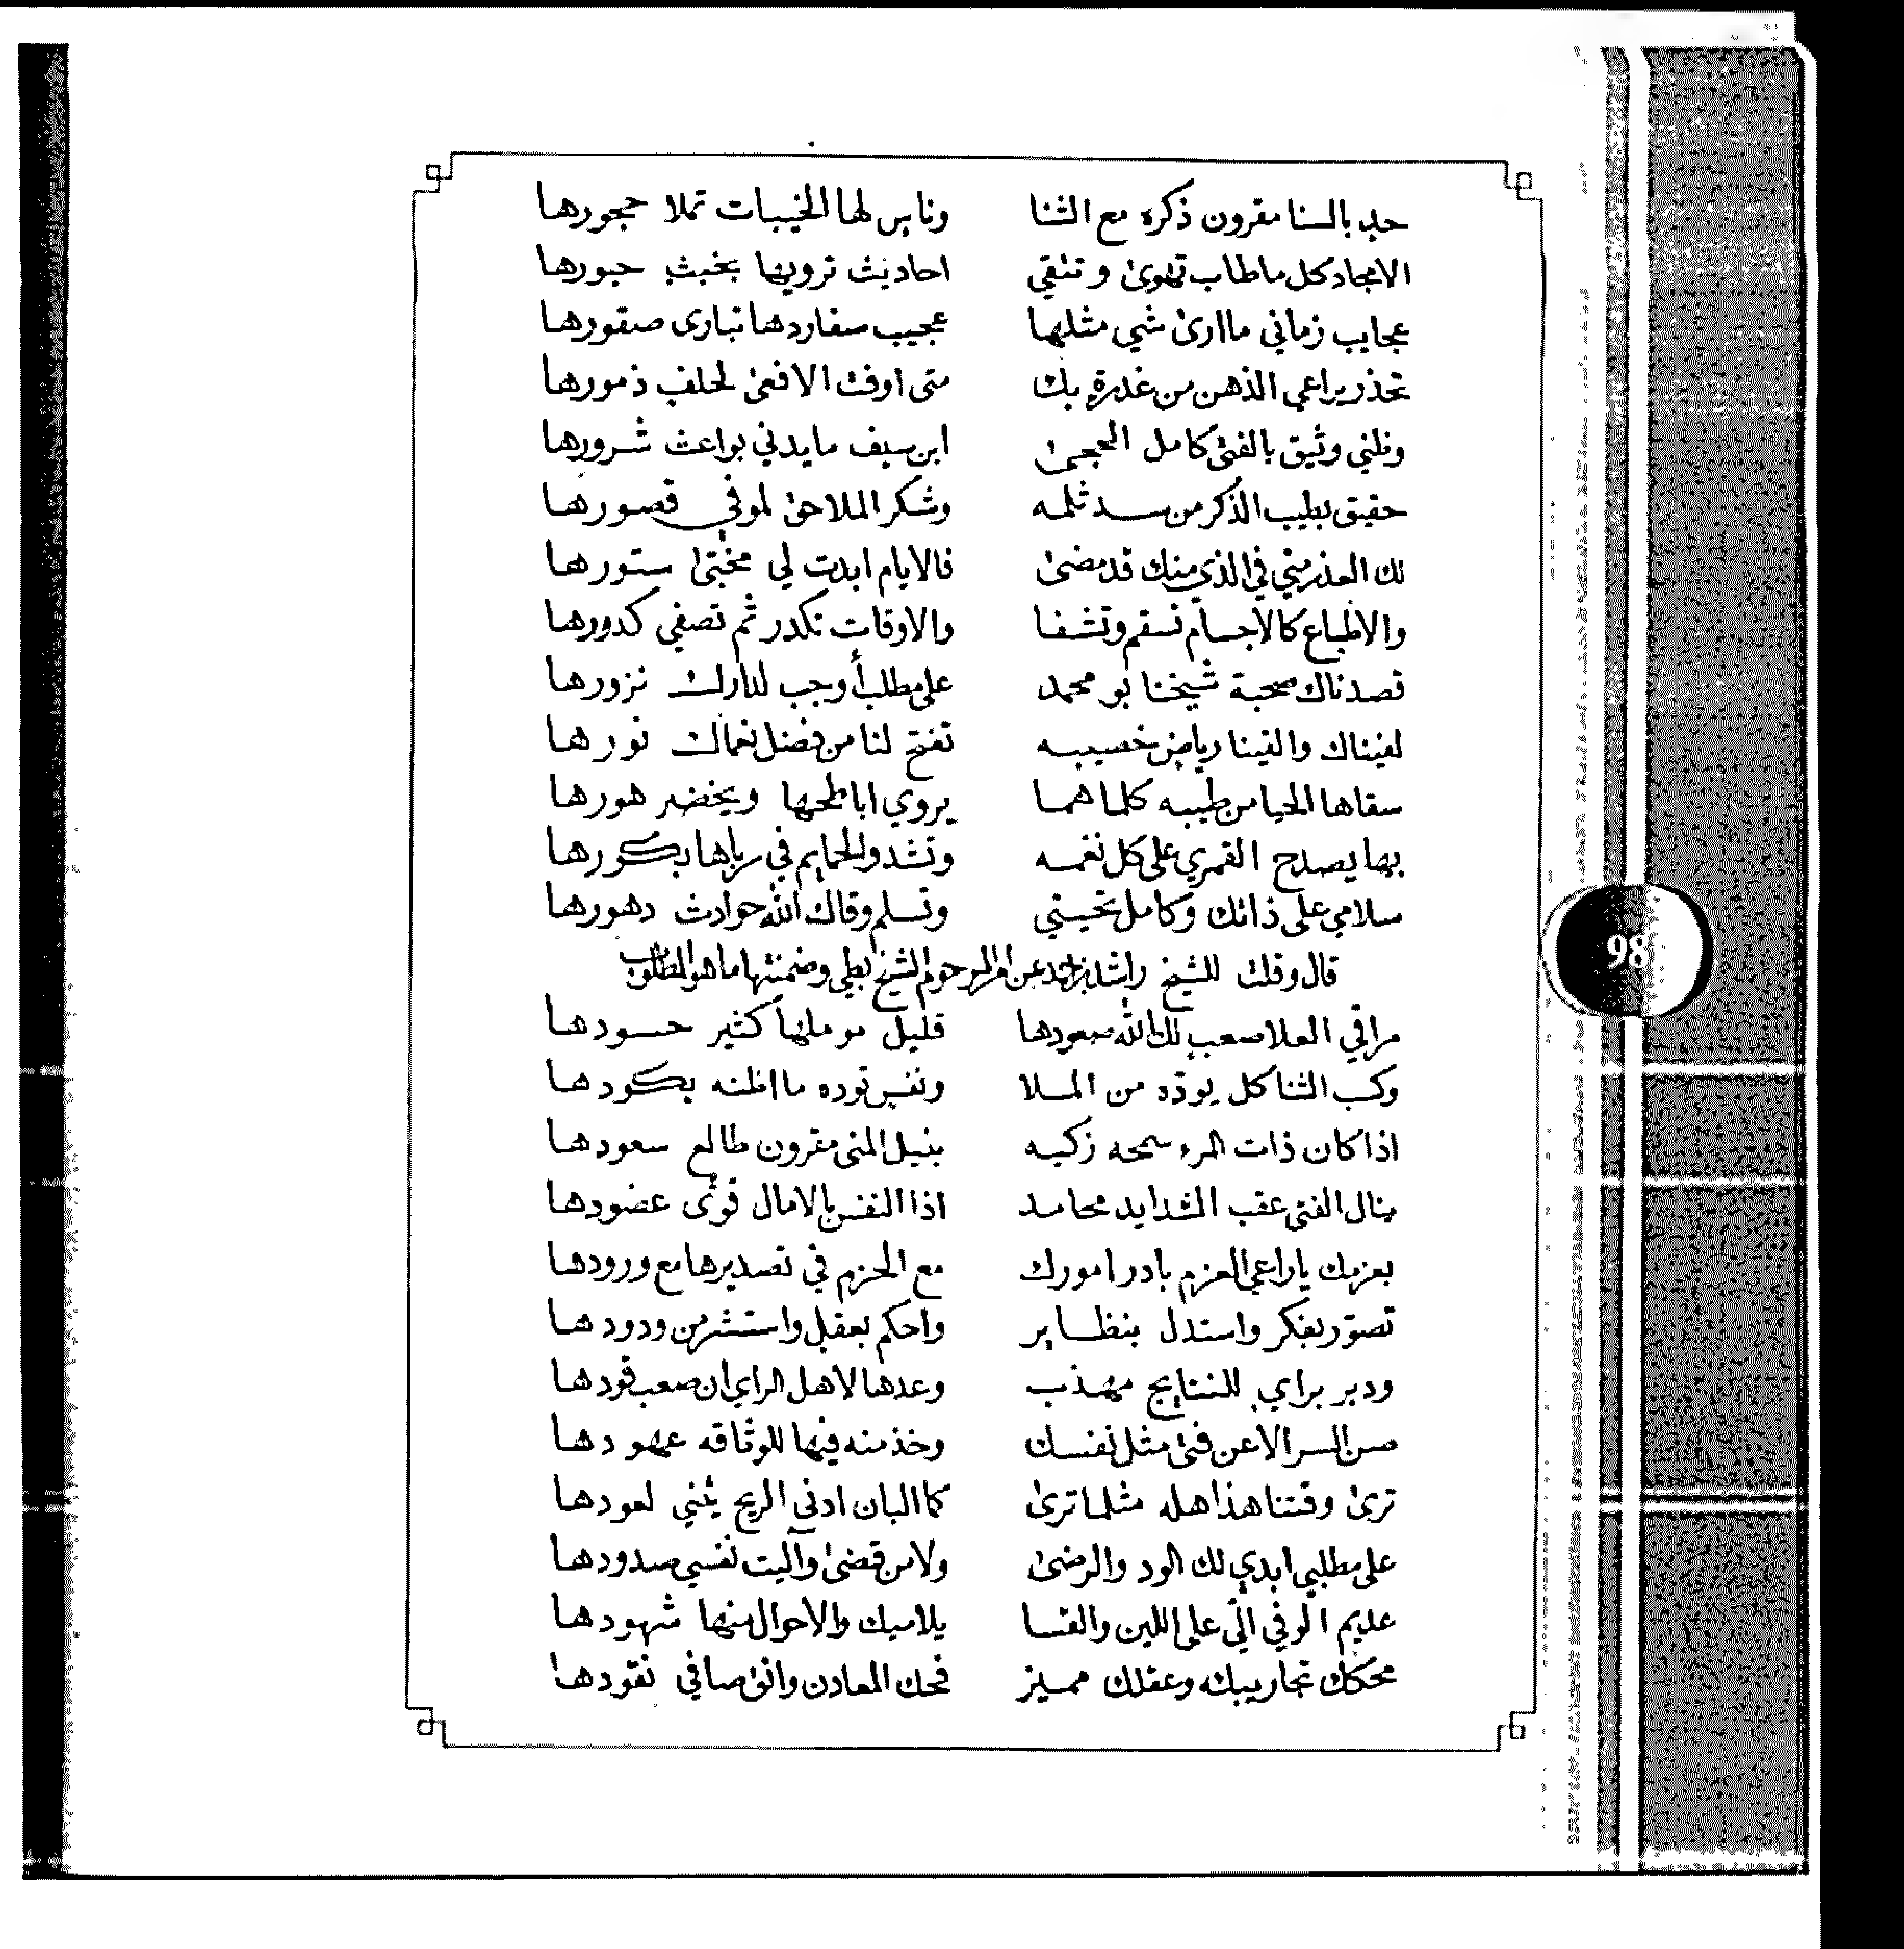 حدٍ بالسنا مقرون ذكره مع الثنا وناسٍ لها الخيبات تملا حجورها
الامجاد كل ما طاب تهوىٰ وتنقي احاديث ترويها بخبثٍ حبورها
عجايب زماني ما ارىٰ شي مثلها عجيب صفاردها تبارى صقورها
تحذر يراعي الذهن من غدرةٍ بك متى اوفت الافعىٰ لحلفٍ ذمورها
وظني وثيق بالفتىٰ كامل الحجىٰ ابن سيف ما يدني بواعث شرورها
حقيق بطيب الذكر من سد ثلمه وشكر الملا حقٰ لموفي قصورها
لك العذر مني في الذي منك قد مضىٰ فالايام ابدت لي مختبىٰ ستورها
والاطباع كالاجسام تسقم وتشفا والاوقات تكدر ثم تصفي كدورها
قصدناك صحبة شيخنا بو محمد على مطلبٍ أوجب لدارك نزورها
لفيناك والفينا رياضٍ خصيبه تفتح لنا من فضل نعماك نورها
سقاها الحيا من طيبه كلما هما يروي اباطحها ويخضر هورها
بها يصدح القمري على كل نغمه وتشدو الحمايم في رباها بكورها
سلامي على ذاتك وكامل تحيتي وتسلم وقاك الله حوادث دهورها
قال وقلت للشيخ راشد بن احمد عن امر المرحوم الشيخ بطي وضمنتها ما هو المطلوب
مراقي العلا صعبٍ لك الله صعودها قليل موملها كثير حسودها
وكسب الثنا كل يودّه من الملا ونفسٍ توده ما اظنه يكودها
اذا كان ذات المرء سمحه زكيه بنيل المنى مقرون طالع سعودها
ينال الفتى عقب الشدايد محامد اذا النفس بالامال قوّى عضودها
بعزمك يا راعي العزم بادر امورك مع الحزم في تصديرها مع ورودها
تصوّر بفكر واستدل بنظاير واحكم بعقلٍ واستشر من ودودها
ودبر براي للنتايج مهذب وعدها لاهل الراي ان صعب قودها
صن السر الا عن فتىٰ مثل نفسك وخذ منه فيها للوثاقه عهودها
ترىٰ وقتنا هذا هله مثلما ترىٰ كما البان ادنى الريح يثني لعودها
على مطلبي ابدي لك الود والرضىٰ ولا من قضىٰ وآليت نفسي صدودها
عديم الوفي اليّ على اللين والقسا يلاميك والاحوال منها شهودها
محكك تجاريبك وعقلك مميز فحك المعادن وانق صافي نقودها
98